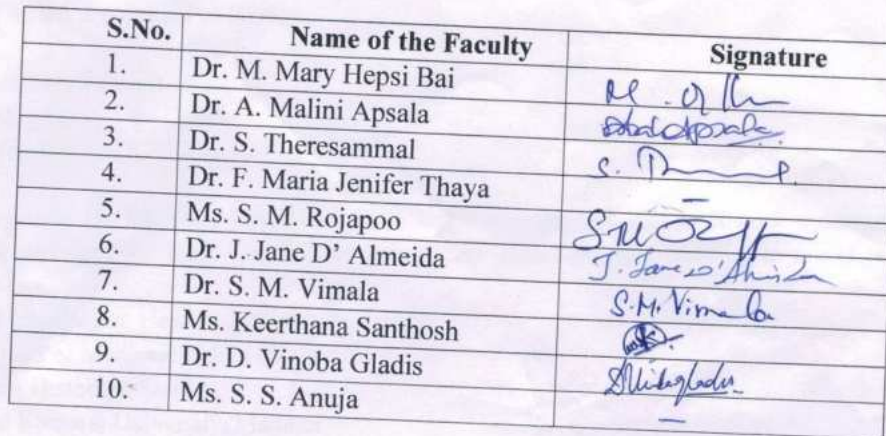 S.No. Name of the Faculty Signature
1. Dr. M. Mary Hepsi Bai
2. Dr. A. Malini Apsala
3. Dr. S. Theresammal S.
4. Dr. F. Maria Jenifer Thaya –
5. Ms. S. M. Rojapoo
6. Dr. J. Jane D' Almeida J. Jane D' Almeida
7. Dr. S. M. Vimala S.M. Vimala
8. Ms. Keerthana Santhosh
9. Dr. D. Vinoba Gladis
10. Ms. S. S. Anuja –